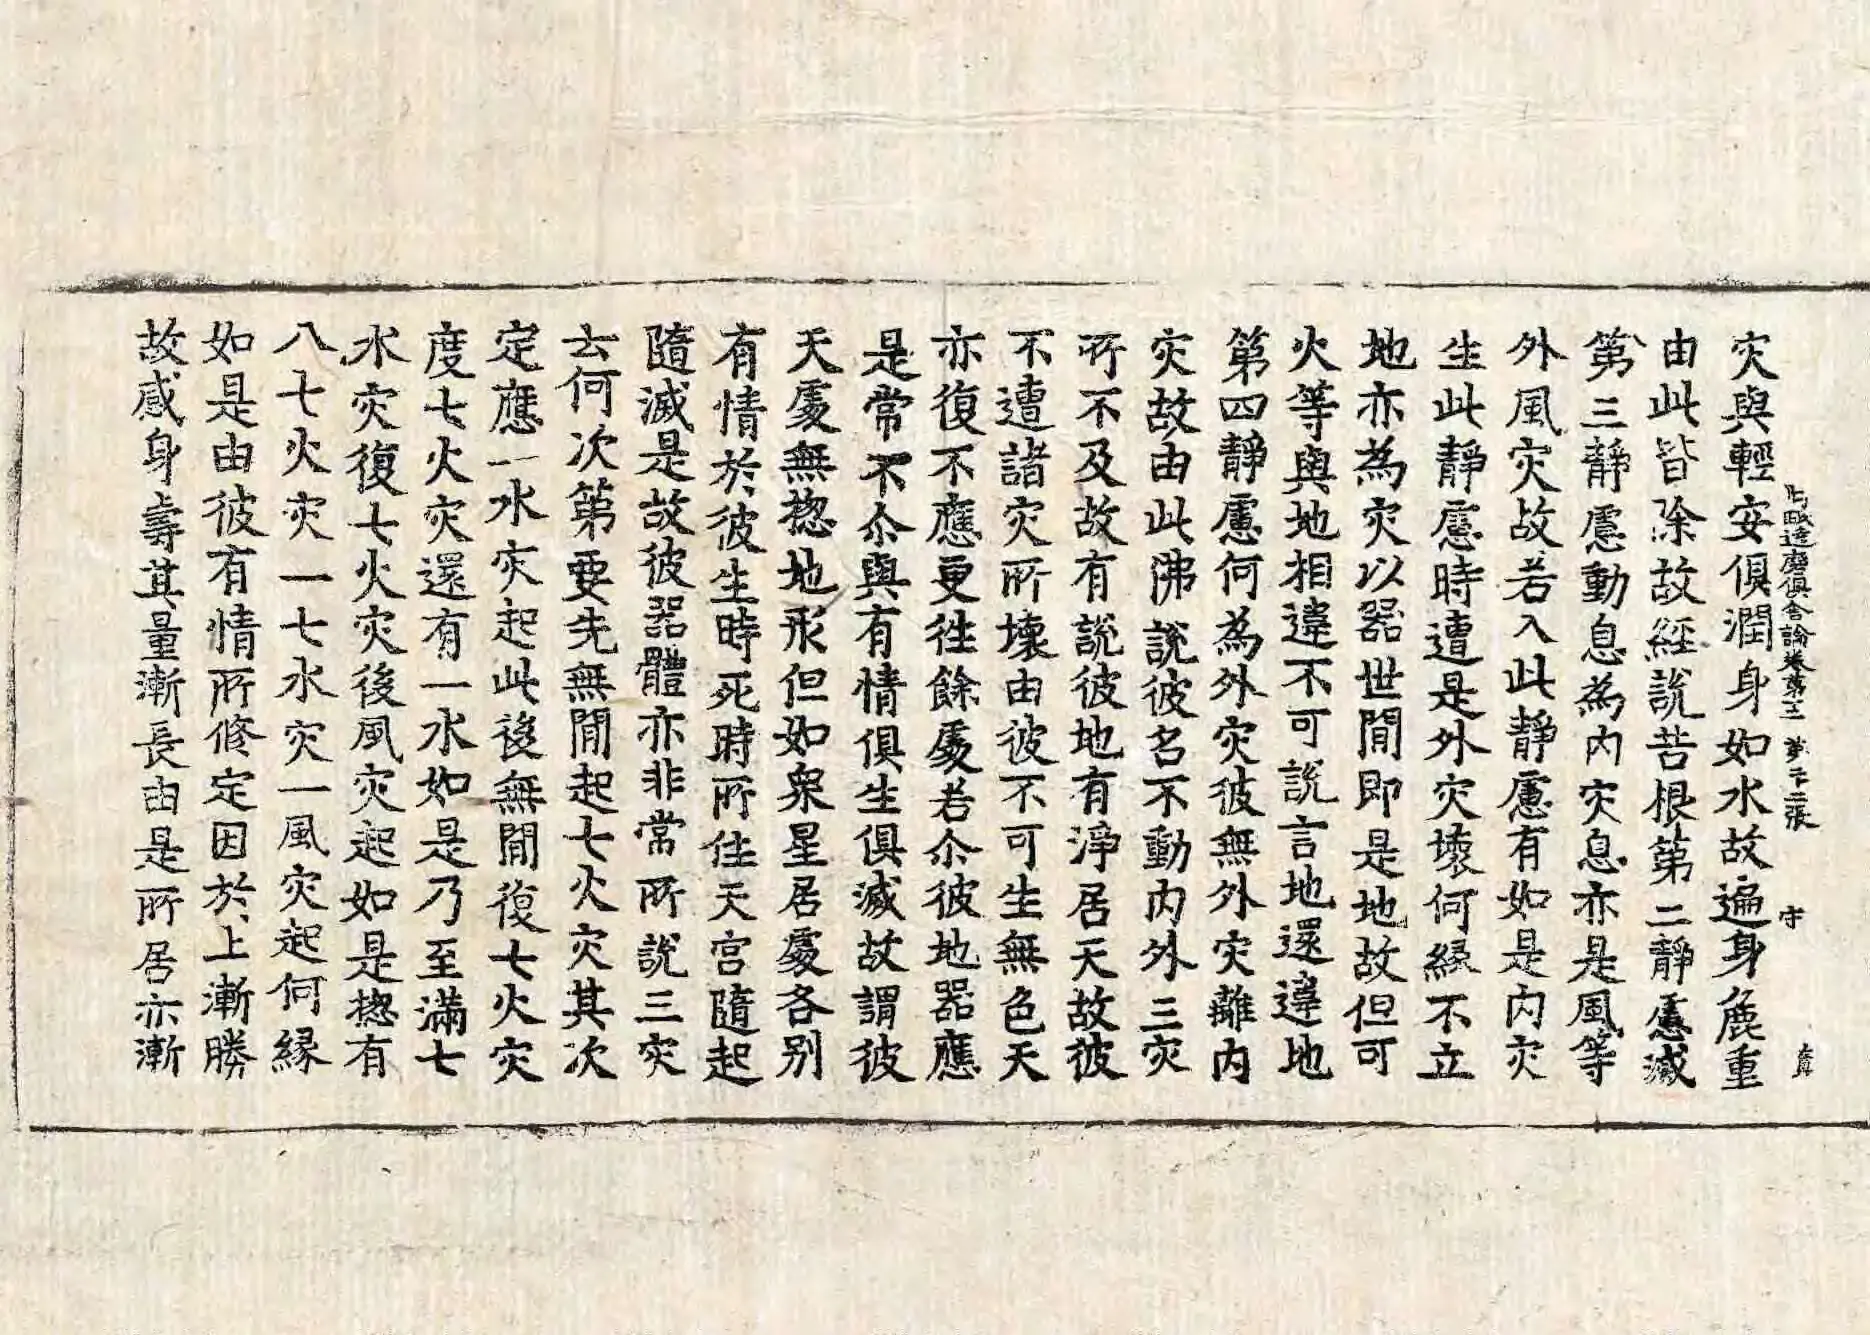 阿毗達磨俱舍論卷第十二 第二十二張 守
灾與輕安俱潤身如水故遍身麁重
由此皆除故經說苦根第二靜慮滅
第三靜慮動息為內灾息亦是風等
外風灾故若入此靜慮有如是內灾
生此靜慮時遭是外灾壞何緣不立
地亦為灾以器世閒即是地故但可
火等與地相違不可說言地還違地
第四靜慮何為外灾彼無外灾離內
灾故由此佛說彼名不動內外三灾
所不及故有說彼地有淨居天故彼
不遭諸灾所壞由彼不可生無色天
亦復不應更往餘處若尒彼地器應
是常不尒與有情俱生俱滅故謂彼
天處無揔地形但如衆星居處各別
有情於彼生時死時所住天宮隨起
隨滅是故彼器體亦非常所說三灾
云何次第要先無閒起七火灾其次
定應一水灾起此後無閒復七火灾
度七火灾還有一水如是乃至滿七
水灾復七火灾後風灾起如是揔有
八七火灾一七水灾一風灾起何緣
如是由彼有情所修定因於上漸勝
故感身壽其量漸長由是所居亦漸